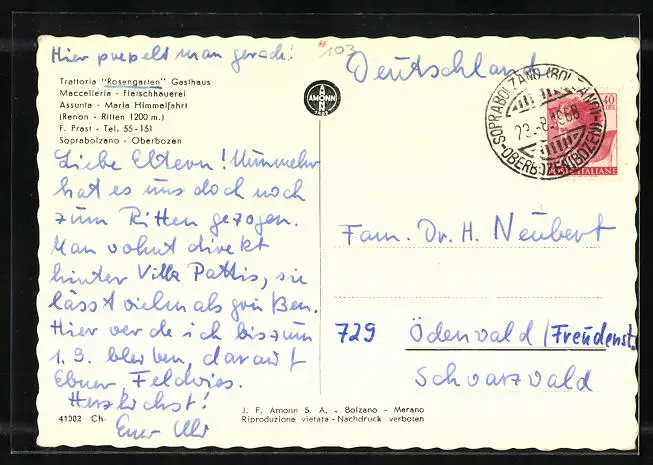 Hier pupelt man gerade!
103
Deutschland
Trattoria "Rosengarten" Gasthaus
Macelleria - Fleischhauerei
Assunta - Maria Himmelfahrt
(Renon - Ritten 1200 m.)
F. Prast - Tel. 55-151
Soprabolzano - Oberbozen
AMONN
SOPRABOLZANO (BOLZANO)
23.-8.1968
OBERBOZEN (BOZEN)
40
LIRE
POSTE ITALIANE
Liebe Eltern! Nunmehr
hat es uns doch noch
zum Ritten gezogen.
Man wohnt direkt
hinter Villa Pattis, sie
lässt vielmals grüßen.
Hier werde ich bis zum
1. 9. bleiben, darauf
Ebner, Feldwies.
Herzlichst!
Euer
Fam. Dr. H. Neubert
729 Ödenwald (Freudenst.
Schwarzwald
41002 Ch
J. F. Amonn S. A. - Bolzano - Merano
Riproduzione vietata - Nachdruck verboten